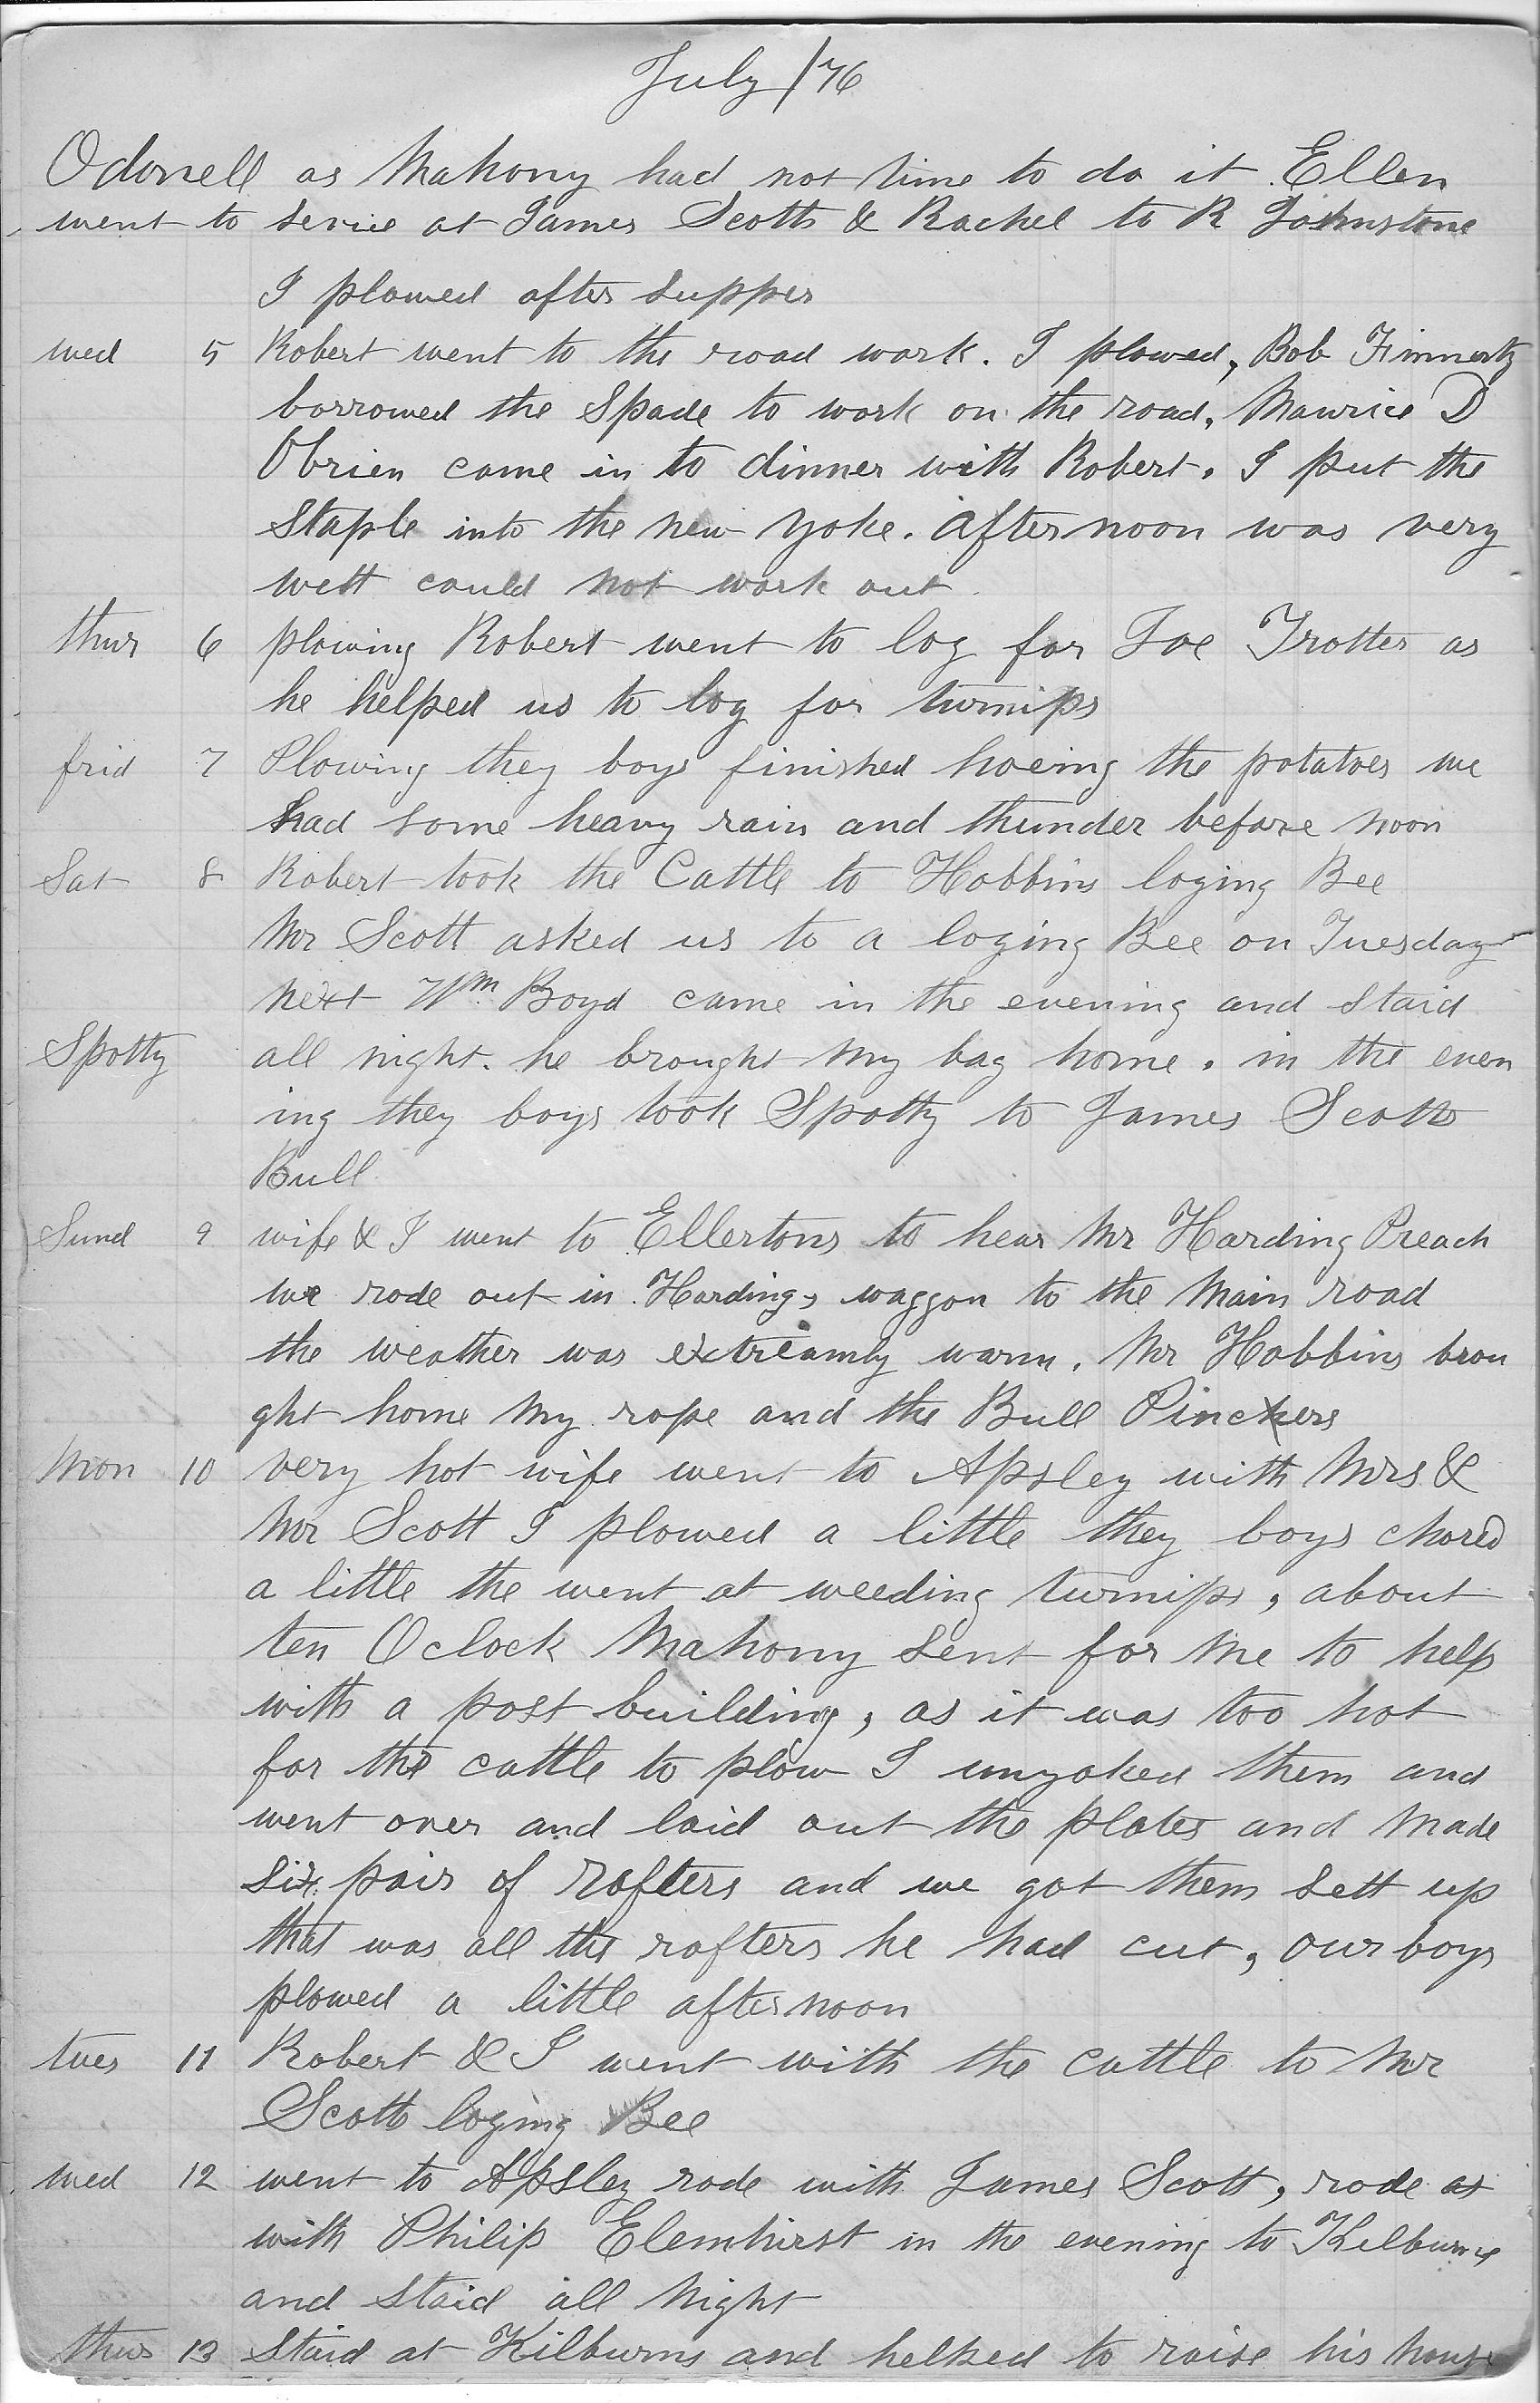 July /76
Odonell as Mahony had not time to do it Ellen
went to servie at James Scotts & Rachel to R Johnstone
I plowed after supper
wed 5 Robert went to the road work. I plowed, Bob Finnerty
borrowed the Spade to work on the road, Maurice D
Obrien came in to dinner with Robert. I put the
Staple into the new Yoke. afternoon was very
wett could not work out
thur 6 plowing Robert went to log for Joe Trotter as
he helped us to log for turnips
frid 7 Plowing they boys finished hoeing the potatoes we
had some heavy rain and thunder before noon
Sat 8 Robert took the Cattle to Hobbins loging Bee
Mr Scott asked us to a loging Bee on Tuesday
next Wm Boyd came in the evening and staid
Spotty all night. he brought my bag home. in the even
ing they boys took Spotty to James Scotts
Bull
Sund 9 wife & I went to Ellertons to hear Mr Harding Preach
we rode out in Hardings waggon to the Main road
the weather was extreamly warm. Mr Hobbins brou
ght home my rope and the Bull Pinchers
Mon 10 very hot wife went to Apsley with Mrs &
Mr Scott I plowed a little they boys chored
a little the went at weeding turnips, about
ten Oclock Mahony sent for me to help
with a post building, as it was too hot
for the cattle to plow I unyoked them and
went over and laid out the plates and Made
six pair of rafters and we got them sett up
that was all the rafters he had cut, our boys
plowed a little afternoon
tues 11 Robert & I went with the cattle to Mr
Scotts loging Bee
wed 12 went to Apsley rode with James Scott, rode
with Philip Elemhirst in the evening to Kilburns
and staid all Night
thur 13 Staid at Kilburns and helked to raise his house